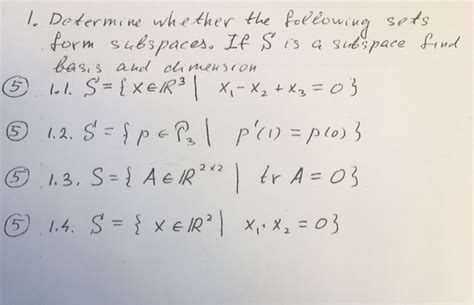 1. Determine whether the following sets
form subspaces. If S is a subspace find
basis and dimension
⑤ 1.1. S = { x ∈ ℝ³ | x₁ - x₂ + x₃ = 0 }
⑤ 1.2. S = { p ∈ P₃ | p'(1) = p(0) }
⑤ 1.3. S = { A ∈ ℝ²ˣ² | tr A = 0 }
⑤ 1.4. S = { x ∈ ℝ² | x₁ · x₂ = 0 }